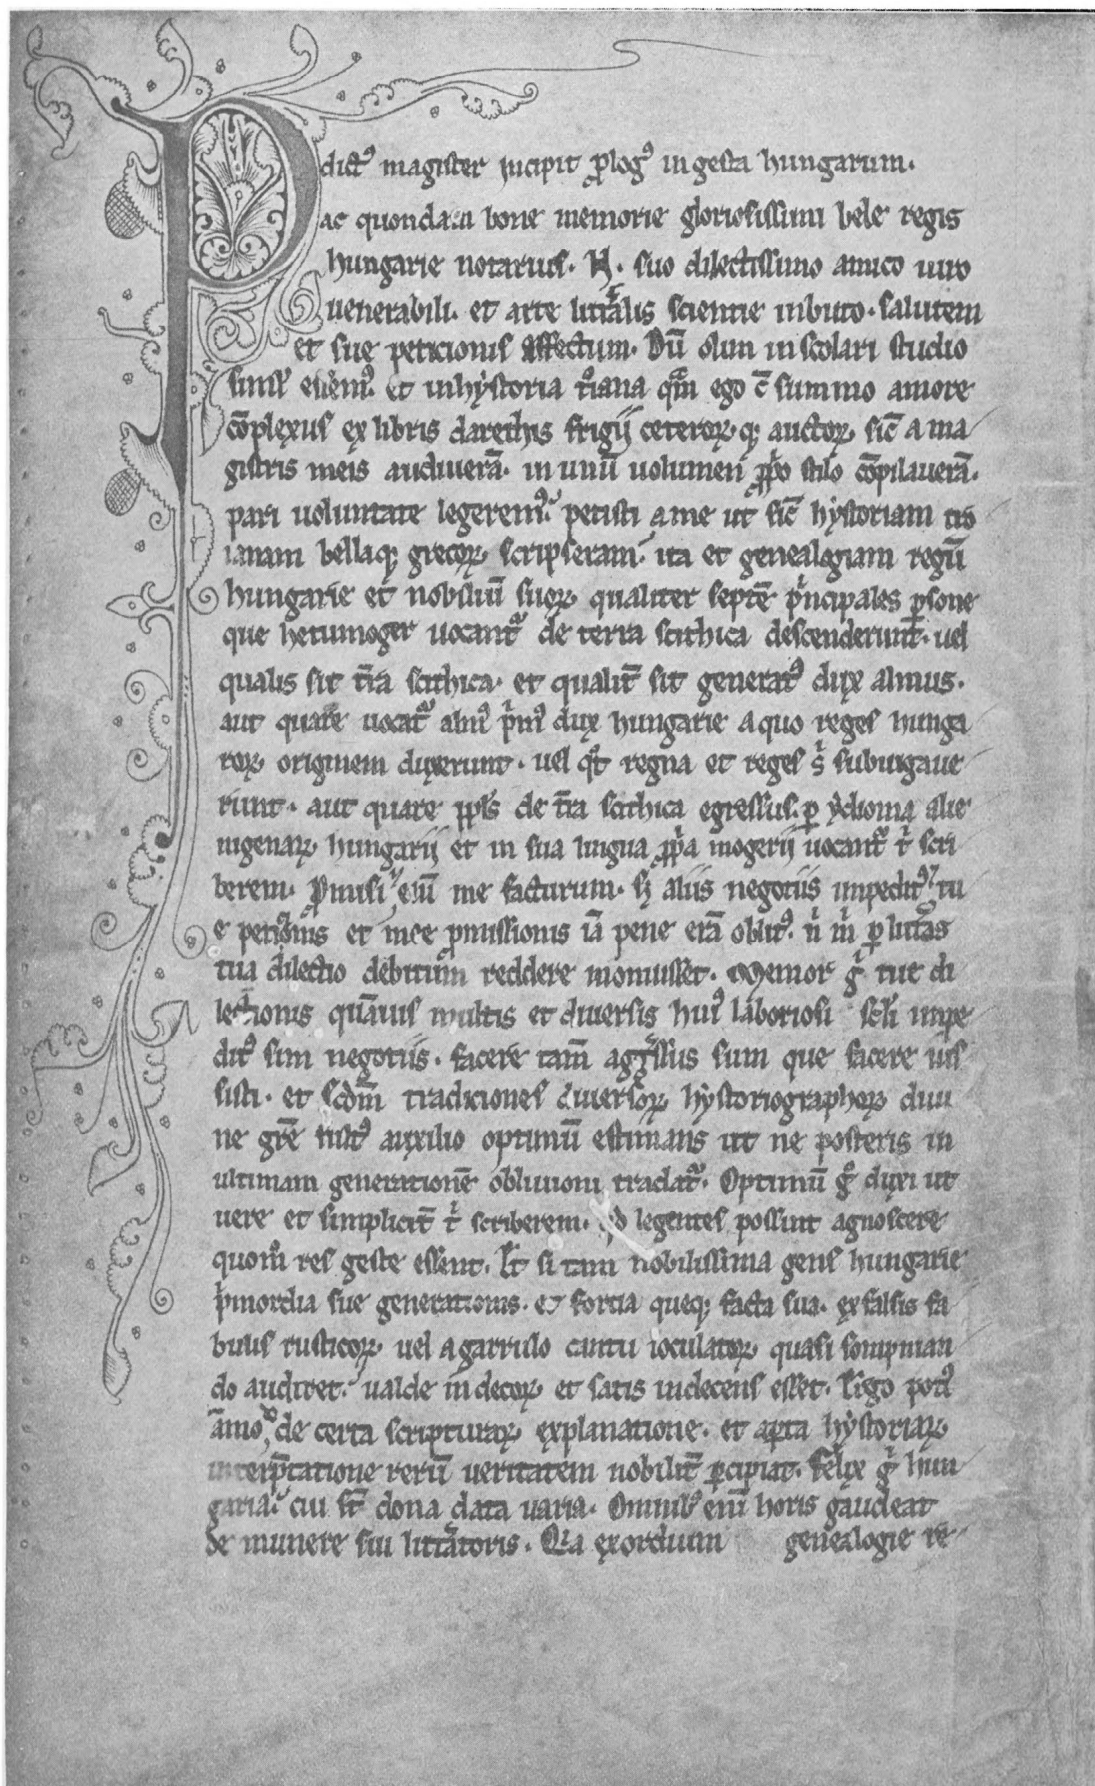 P dictꝰ magister incipit ꝓlogꝰ in gesta hungarum.
ac quondam bone memorie gloriosissimi bele regis
hungarie notarius. N. suo dilectissimo amico uiro
uenerabili. et arte litt͛alis scientie inbuto. salutem
et sue peticionis affectum. Dū olim in scolari studio
simĺ eēmꝰ. et in hẏstoria t͛iana qm̄ ego c̄ summo amore
cōplexus ex libris darethis frigij ceteroꝝ qꝫ auctoꝝ. sic̄ a ma
gistris meis audiuerā. in unū uolumen ꝓpo stilo cōpilauerā.
pari uoluntate legeremꝰ. petisti a me ut sic̄ hẏstoriam tro
ianam bellaqꝫ grecoꝝ scripseram. ita et genealogiam regū
hungarie et nobiliū suoꝝ. qualiter septē p͛ncipales ꝑsone
que hetumoger uocant᷑ de terra scithica descenderunt. uel
qualis sit t̄ra scithica. et qualit̄ sit generatꝰ dux almus.
aut quare uocat᷑ almꝰ p͛mꝰ dux hungarie a quo reges hunga
roꝝ originem duxerunt. uel qͦt regna et reges s͛ subiugaue
runt. aut quare ppĺs de t̄ra scithica egressus. ꝑ ẏdioma alie
nigenaꝝ hungarij et in sua lingua ꝓp͛a mogerij uocant᷑ t͛ scri
berem. Promisi et eni me facturum. sꝫ aliis negotiis impeditꝰ. tu
e peticōnis et mee ꝓmissionis iā pene erā oblitꝰ. ń m͛ ꝑ litt͛as
tua dilectio debitum reddere monuisset. Memor g͛ tue di
lectionis quāuis multis et diuersis huiꝰ laboriosi scĺi impe
ditꝰ sim negotiis. facere tam̄ agg͛ssus sum que facere ius
sisti. et scd̄m traditiones diuersoꝝ hẏstoriographoꝝ diui
ne gr̄e fultꝰ auxilio optimū estimans ut ne posteris in
ultimam generationē obliuioni tradat᷑. Optimū g͛ duxi ut
uere et simplicit̄ t͛ scriberem. qd̄ legentes possint agnoscere
quomͦ res geste essent. Et si tam nobilissima gens hungarie
p͛mordia sue generationis. et fortia queqꝫ facta sua. ex falsis fa
bulis rusticoꝝ. uel a garrulo cantu ioculatoꝝ quasi sompnian
do audiret. ualde indecoꝝ et satis indecens esset. Ergo potiꝰ
āmoͦ de certa scripturaꝝ explanatione. et aperta hẏstoriaꝝ
interp̄tatione rerū ueritatem nobilit̄ ꝑcipiat. Felix g͛ hun
garia. cui st̄ dona data uaria. Omnibꝰ enī horis gaudeat
de munere sui litt͛atoris. Qia exordium genealogie re